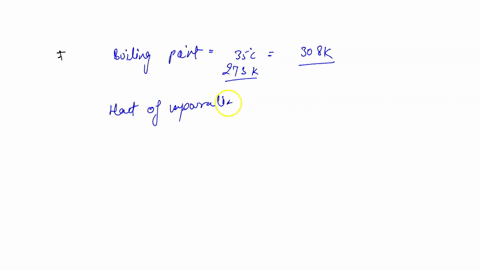 Boiling point = 35°C = 308K
273K
Heat of vaporaliz